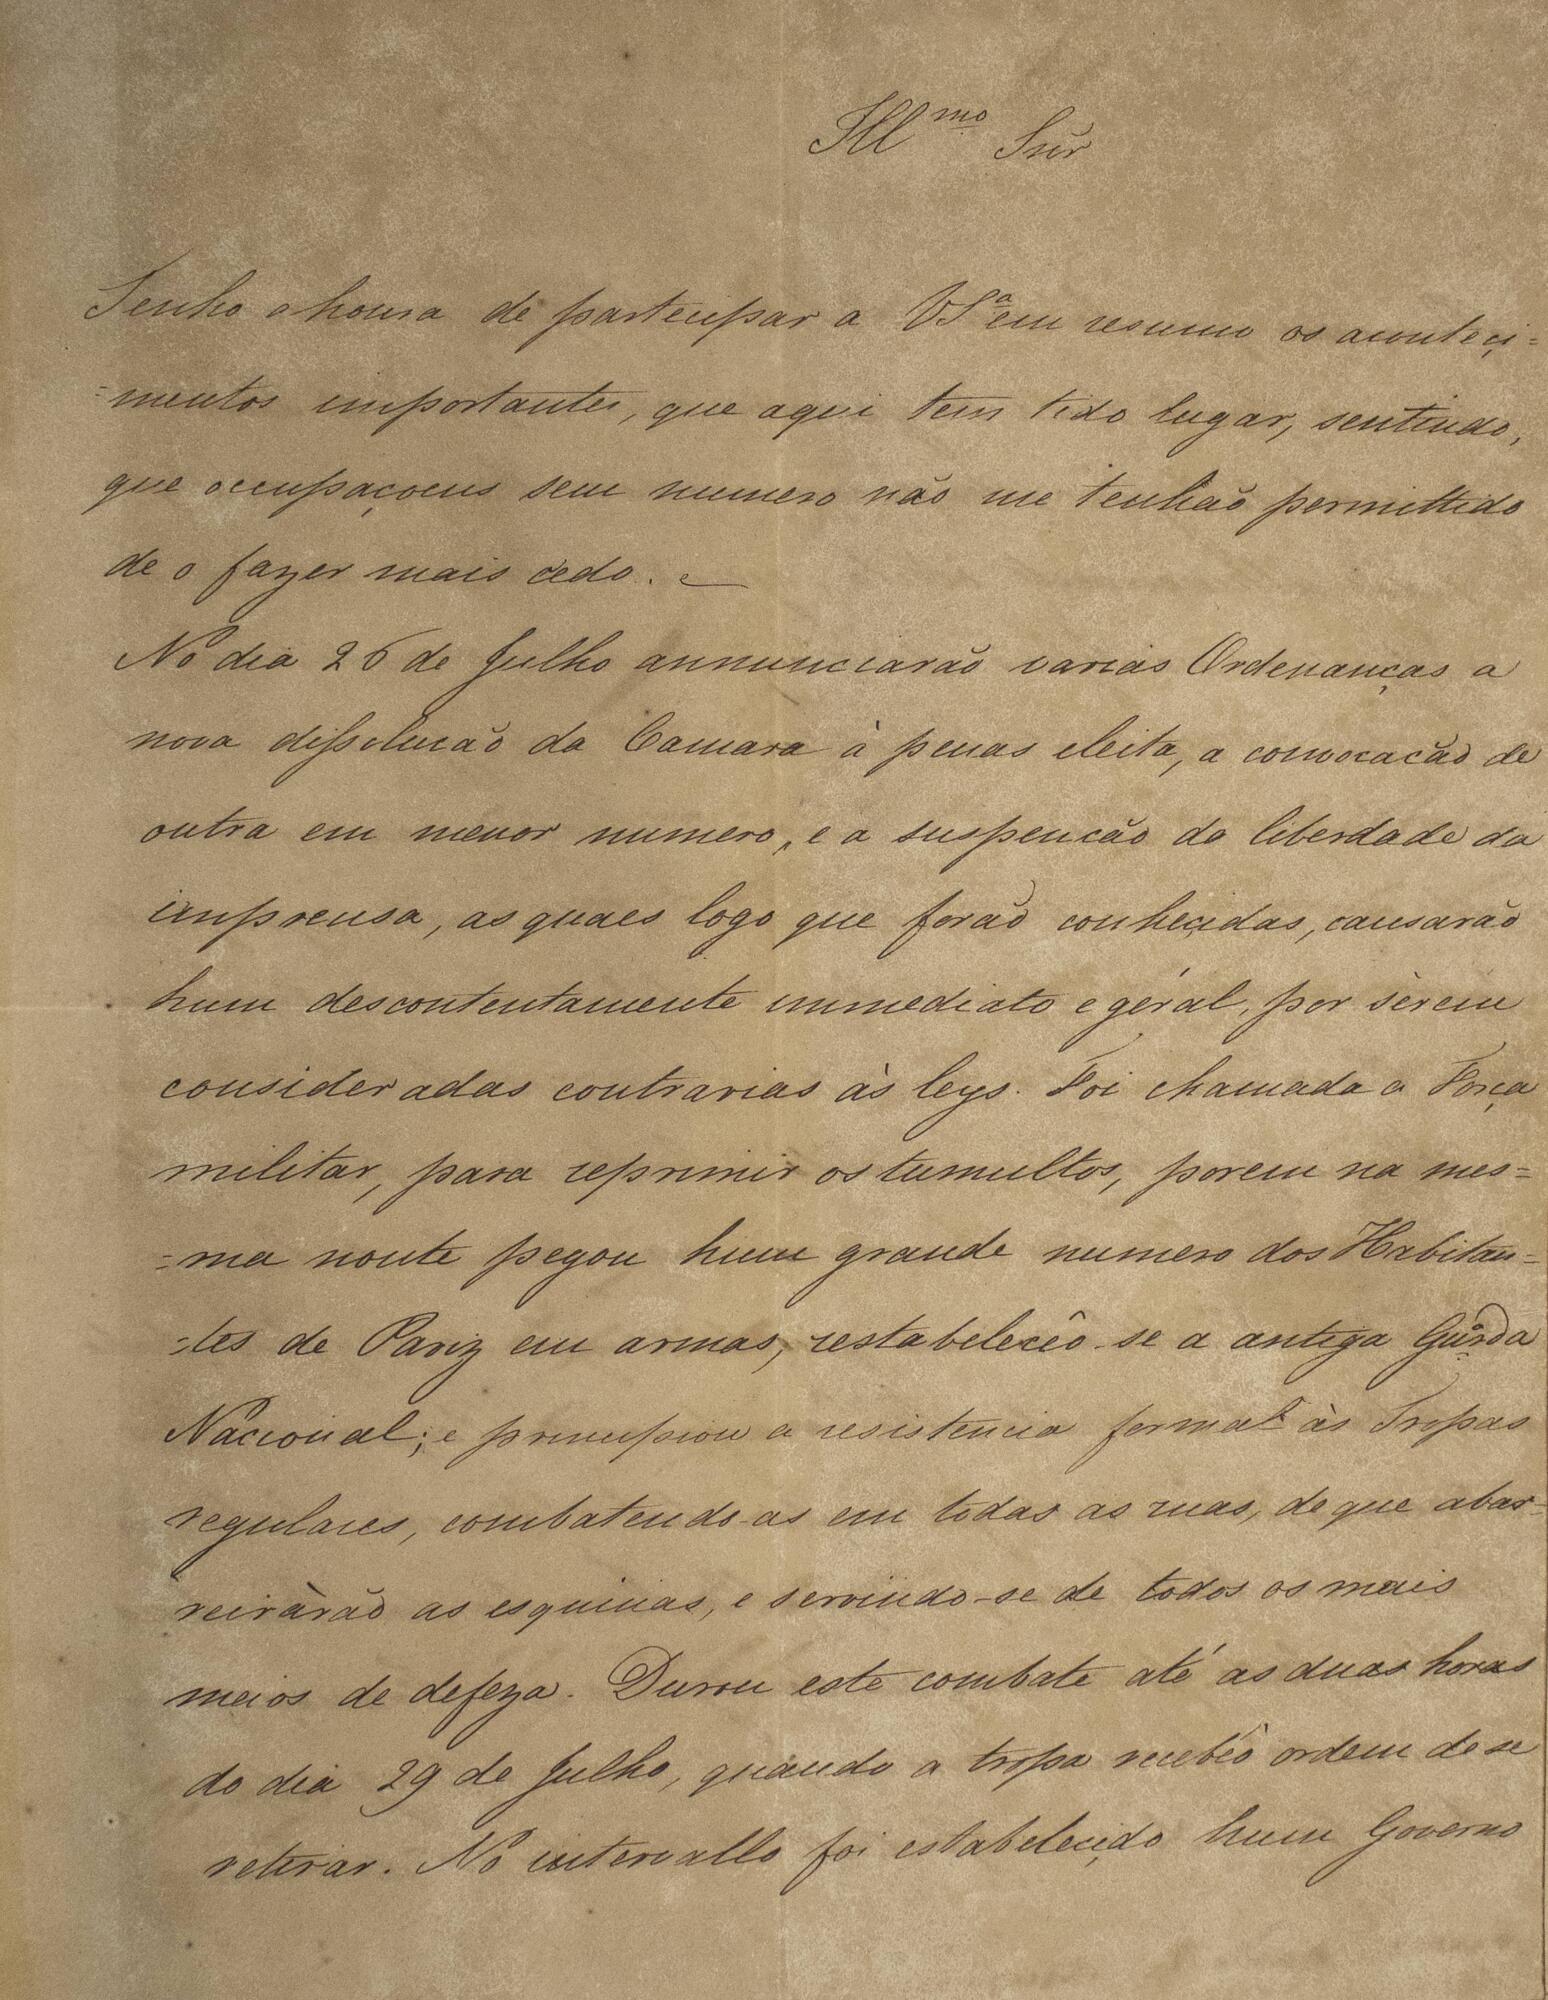 Ill.mo Snr
Tenho a honra de participar a VSª em resumo os aconteçi=
=mentos importantes, que aqui tem tido lugar, sentindo,
que occupaçoens sem numero não me tenhão permittido
de o fazer mais cedo.
No dia 26 de Julho annunciarão varias Ordenanças a
nova dissolucão da Camara à penas eleita, a convocacão de
outra em menor numero, e a suspencão da liberdade da
imprensa, as quaes logo que forão conheçidas, causarão
hum descontentamente immediato e géral, por sèrem
consideradas contrarias às leys. Foi chamada a Força
militar, para reprimir os tumultos, porem na mes=
=ma noute pegou hum grande numero dos Habitan=
=tes de Pariz em armas, restabelecêo-se a antiga Gũrda
Nacional; e principiou a resistencia formal às Tropas
regulares, combatendo-as em todas as ruas, de que abar=
reiràrão as esquinas, e servindo-se de todos os mais
meios de defeza. Durou este combate até as duas horas
do dia 29 de Julho, quando a tropa recebêo ordem de se
retirar. No intervallo foi estabeleçido hum Governo